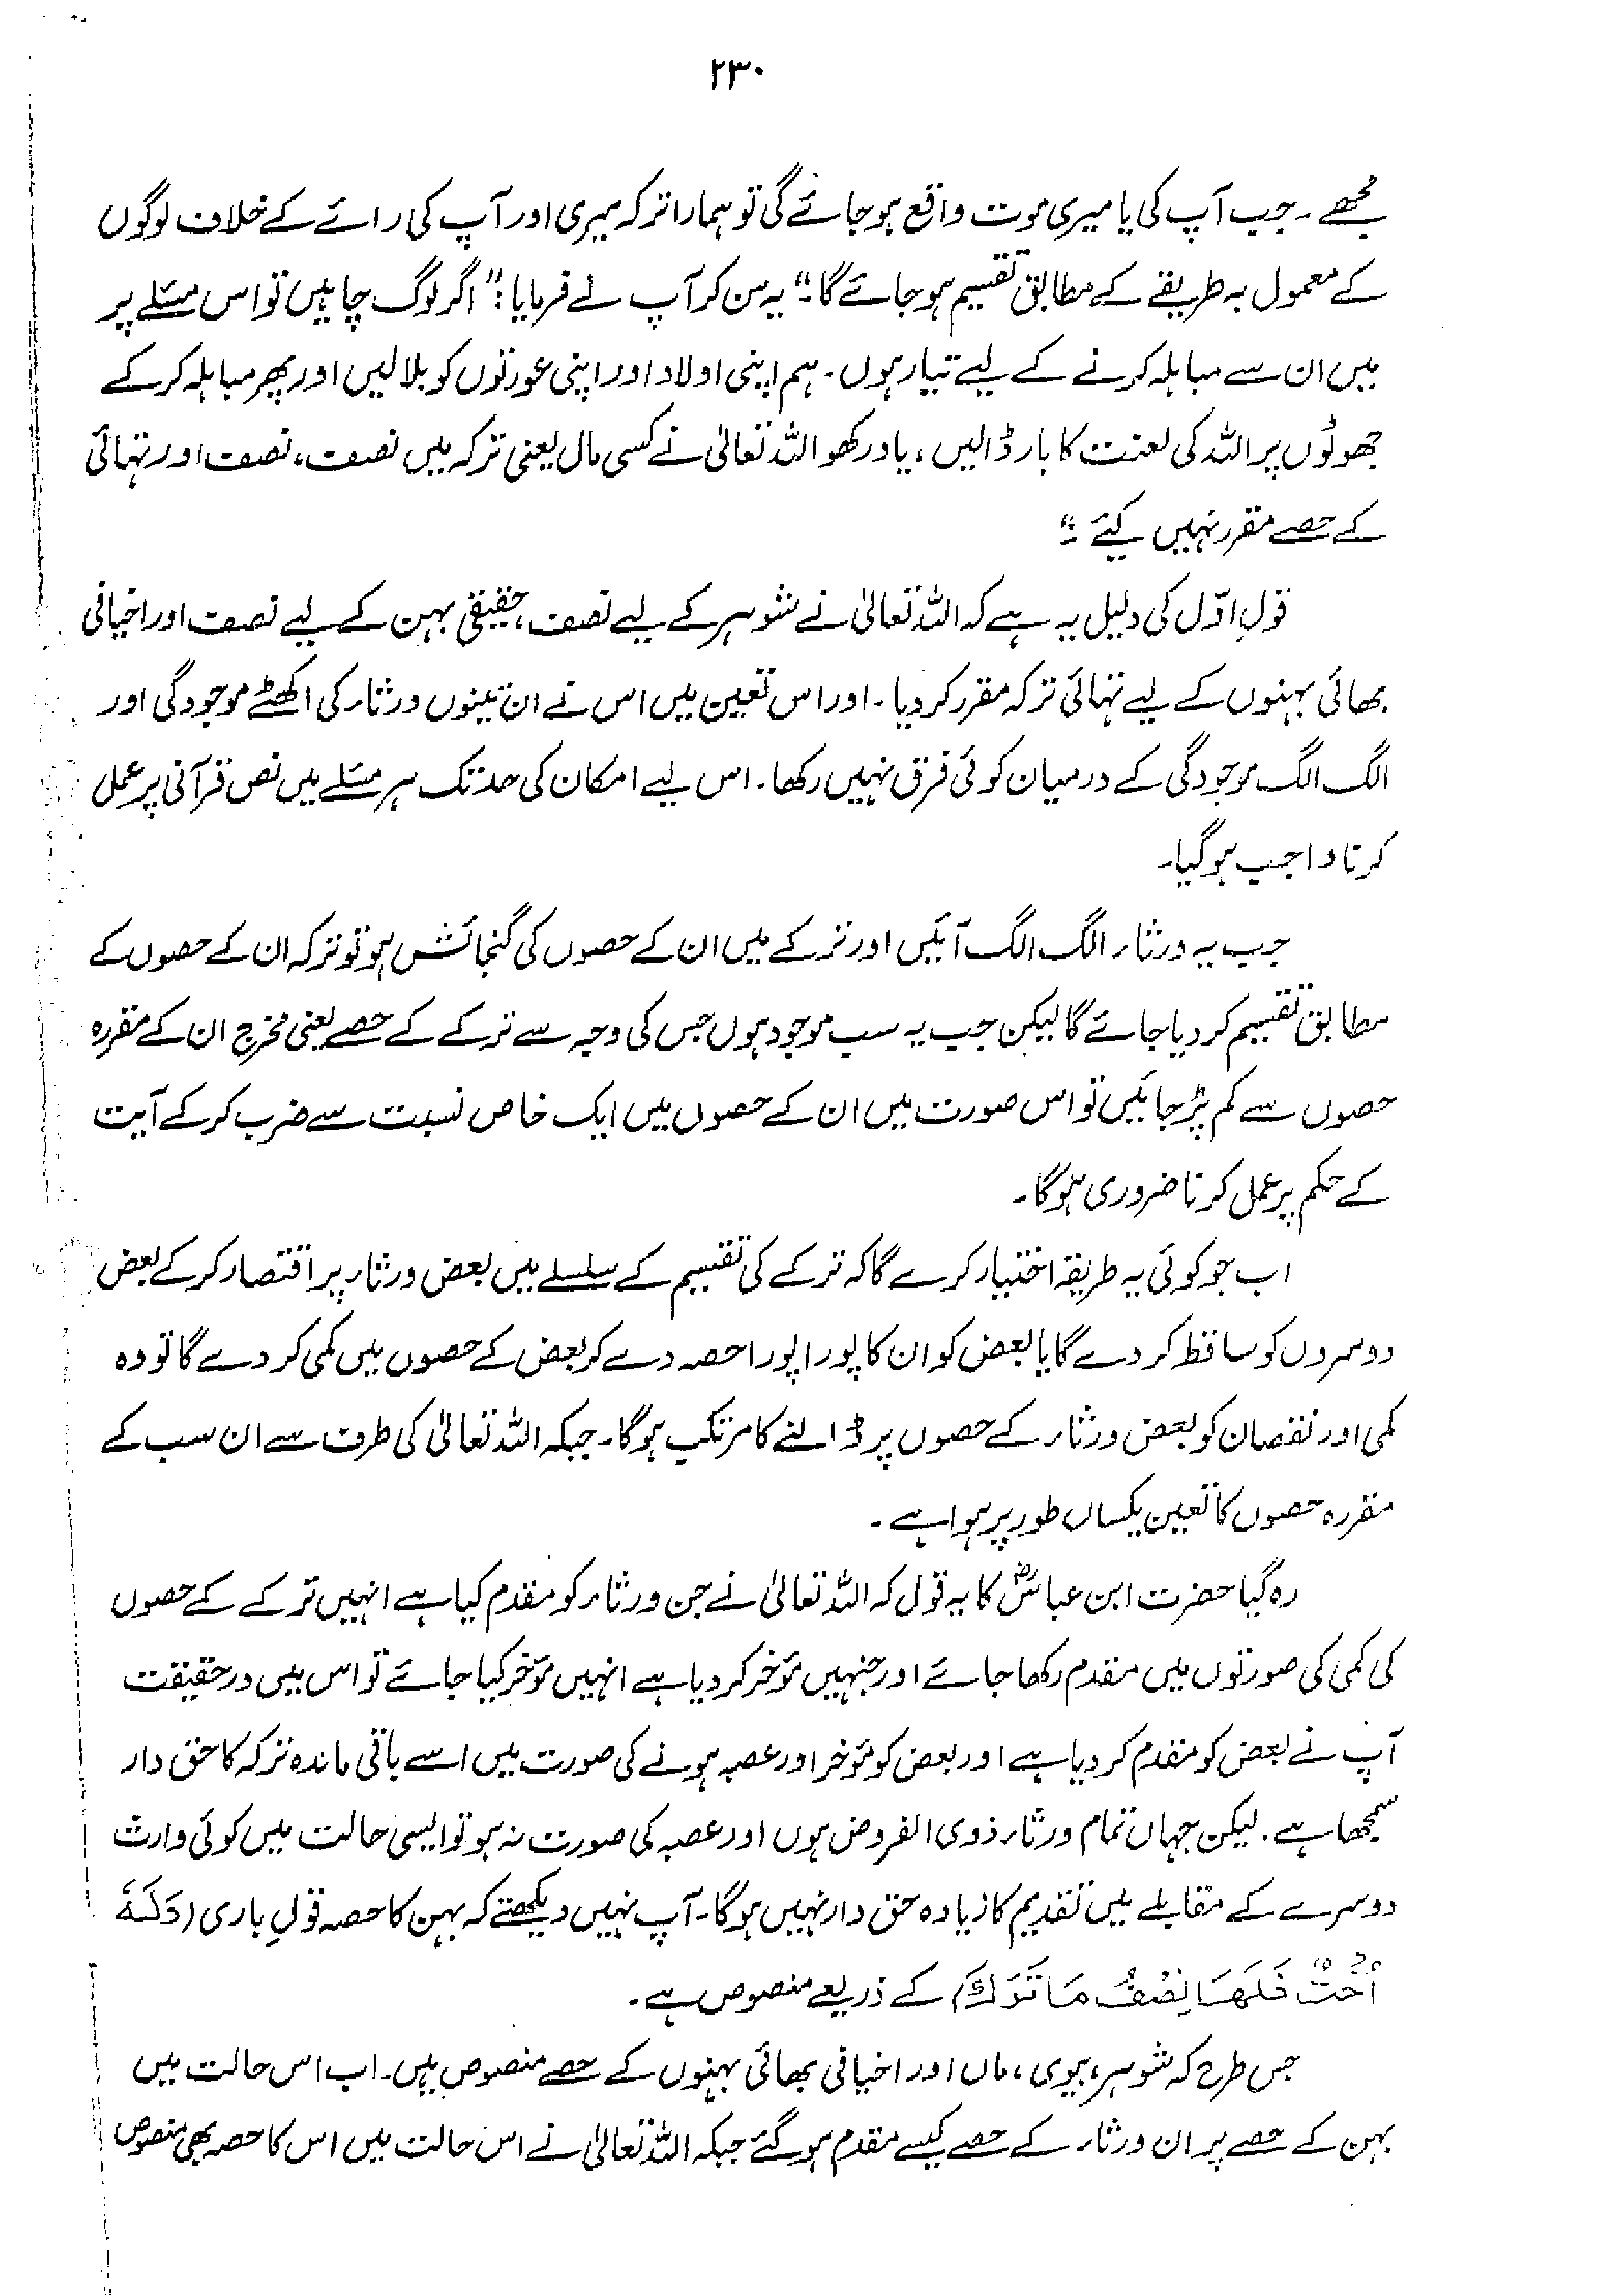 ۲۳۰
مجھے۔ جب آپ کی یا میری موت واقع ہو جائے گی تو ہمارا ترکہ میری اور آپ کی رائے کے خلاف لوگوں
کے معمول بہ طریقے کے مطابق تقسیم ہو جائے گا۔" یہ سن کر آپ نے فرمایا: "اگر لوگ چاہیں تو اس مسئلے پر
میں ان سے مباہلہ کرنے کے لیے تیار ہوں۔ ہم اپنی اولاد اور اپنی عورتوں کو بلا لیں اور پھر مباہلہ کر کے
جھوٹوں پر اللہ کی لعنت کا بار ڈالیں، یاد رکھو اللہ تعالیٰ نے کسی مال یعنی ترکہ میں نصف، نصف اور تہائی
کے حصے مقرر نہیں کیئے۔"
قولِ اوّل کی دلیل یہ ہے کہ اللہ تعالیٰ نے شوہر کے لیے نصف، حقیقی بہن کے لیے نصف اور اخیافی
بھائی بہنوں کے لیے تہائی ترکہ مقرر کر دیا۔ اور اس تعیین میں اس نے ان تینوں ورثاء کی اکھٹے موجودگی اور
الگ الگ موجودگی کے درمیان کوئی فرق نہیں رکھا۔ اس لیے امکان کی حد تک ہر مسئلے میں نص قرآنی پر عمل
کرنا واجب ہو گیا۔
جب یہ ورثاء الگ الگ آئیں اور ترکے میں ان کے حصوں کی گنجائش ہو تو ترکہ ان کے حصوں کے
مطابق تقسیم کر دیا جائے گا لیکن جب یہ سب موجود ہوں جس کی وجہ سے ترکے کے حصے یعنی مخرج ان کے مقررہ
حصوں سے کم پڑ جائیں تو اس صورت میں ان کے حصوں میں ایک خاص نسبت سے ضرب کر کے آیت
کے حکم پر عمل کرنا ضروری ہو گا۔
اب جو کوئی یہ طریقہ اختیار کرے گا کہ ترکے کی تقسیم کے سلسلے میں بعض ورثاء پر اقتصار کر کے بعض
دوسروں کو ساقط کر دے گا یا بعض کو ان کا پورا پورا حصہ دے کر بعض کے حصوں میں کمی کر دے گا تو وہ
کمی اور نقصان کو بعض ورثاء کے حصوں پر ڈالنے کا مرتکب ہو گا۔ جبکہ اللہ تعالیٰ کی طرف سے ان سب کے
مقررہ حصوں کا تعیین یکساں طور پر ہوا ہے۔
رہ گیا حضرت ابن عباسؓ کا یہ قول کہ اللہ تعالیٰ نے جن ورثاء کو مقدم کیا ہے انہیں ترکے کے حصوں
کی کمی کی صورتوں میں مقدم رکھا جائے اور جنہیں مؤخر کر دیا ہے انہیں مؤخر کیا جائے تو اس میں درحقیقت
آپ نے بعض کو مقدم کر دیا ہے اور بعض کو مؤخر اور عصبہ ہونے کی صورت میں اسے باقی ماندہ ترکہ کا حق دار
سمجھا ہے۔ لیکن جہاں تمام ورثاء ذوی الفروض ہوں اور عصبہ کی صورت نہ ہو تو ایسی حالت میں کوئی وارث
دوسرے کے مقابلے میں تقدیم کا زیادہ حق دار نہیں ہو گا۔ آپ نہیں دیکھتے کہ بہن کا حصہ قولِ باری (وَلَهٗ
اُخْتٌ فَلَهَا نِصْفُ مَا تَرَكَ) کے ذریعے منصوص ہے۔
جس طرح کہ شوہر، بیوی، ماں اور اخیافی بھائی بہنوں کے حصے منصوص ہیں۔ اب اس حالت میں
بہن کے حصے پر ان ورثاء کے حصے کیسے مقدم ہو گئے جبکہ اللہ تعالیٰ نے اس حالت میں اس کا حصہ بھی منصوص